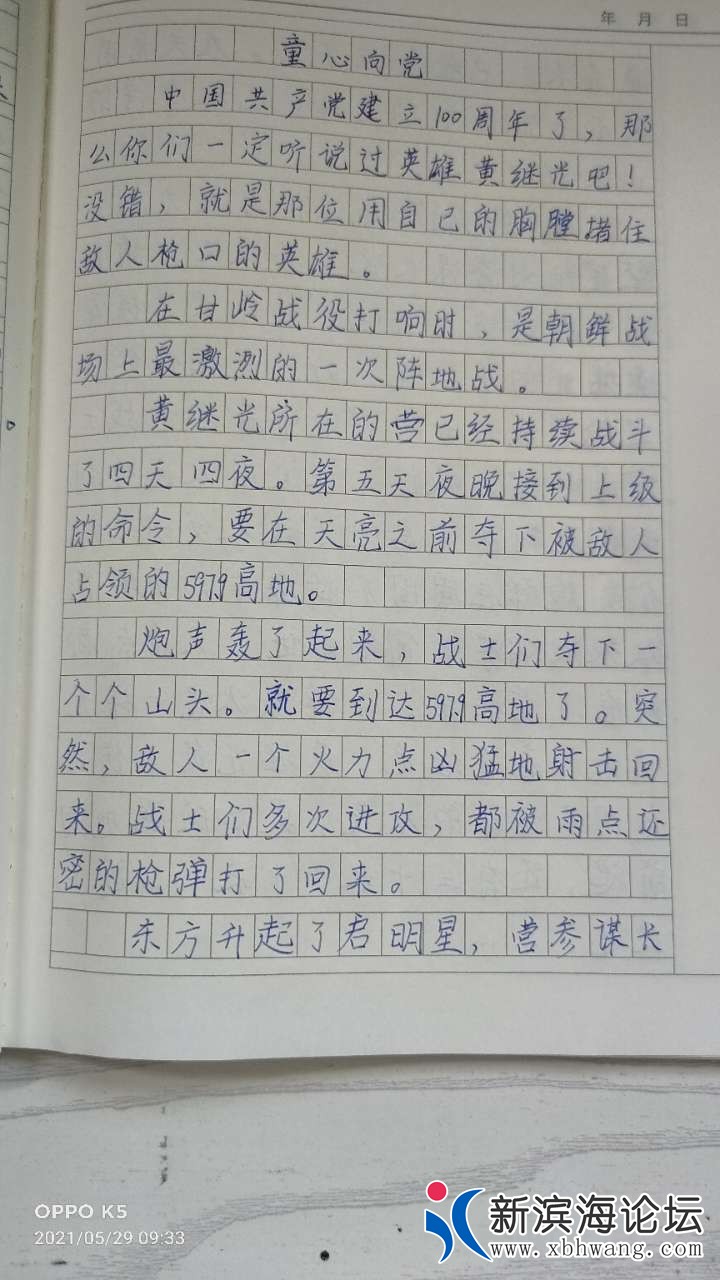 年 月 日
童心向党
中国共产党建立100周年了，那
么你们一定听说过英雄黄继光吧！
没错，就是那位用自己的胸膛堵住
敌人枪口的英雄。
在甘岭战役打响时，是朝鲜战
场上最激烈的一次阵地战。
黄继光所在的营已经持续战斗
了四天四夜。第五天夜晚接到上级
的命令，要在天亮之前夺下被敌人
占领的597.9高地。
炮声轰了起来，战士们夺下一
个个山头。就要到达597.9高地了。突
然，敌人一个火力点凶猛地射击回
来。战士们多次进攻，都被雨点还
密的枪弹打了回来。
东方升起了启明星，营参谋长
OPPO K5
2021/05/29 09:33
新滨海论坛
www.xbhwang.com